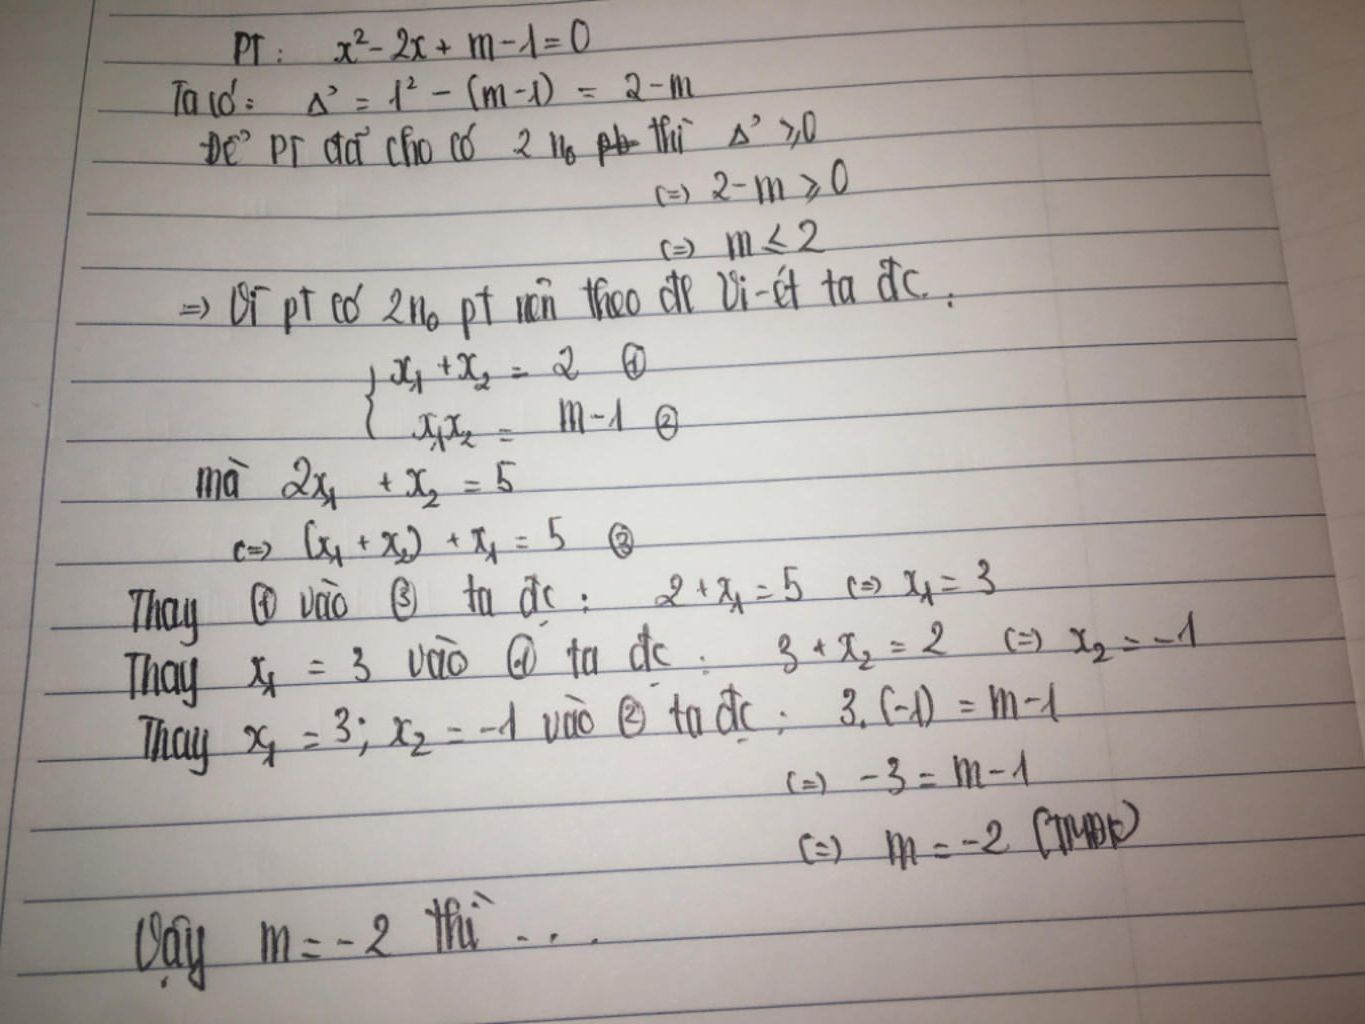 PT: x² - 2x + m - 1 = 0
Ta có: Δ' = 1² - (m-1) = 2 - m
Để PT đã cho có 2 n₀ pb thì Δ' ≥ 0
(=) 2 - m ≥ 0
(=) m ≤ 2
=) Vì pt có 2 n₀ pt nên theo đl Vi-ét ta đc:
{ x₁ + x₂ = 2 ①
x₁x₂ = m - 1 ②
mà 2x₁ + x₂ = 5
(=) (x₁ + x₂) + x₁ = 5 ③
Thay ① vào ③ ta đc: 2 + x₁ = 5 (=) x₁ = 3
Thay x₁ = 3 vào ① ta đc: 3 + x₂ = 2 (=) x₂ = -1
Thay x₁ = 3; x₂ = -1 vào ② ta đc: 3.(-1) = m - 1
(=) -3 = m - 1
(=) m = -2 (TMĐK)
Vậy m = -2 thì ...